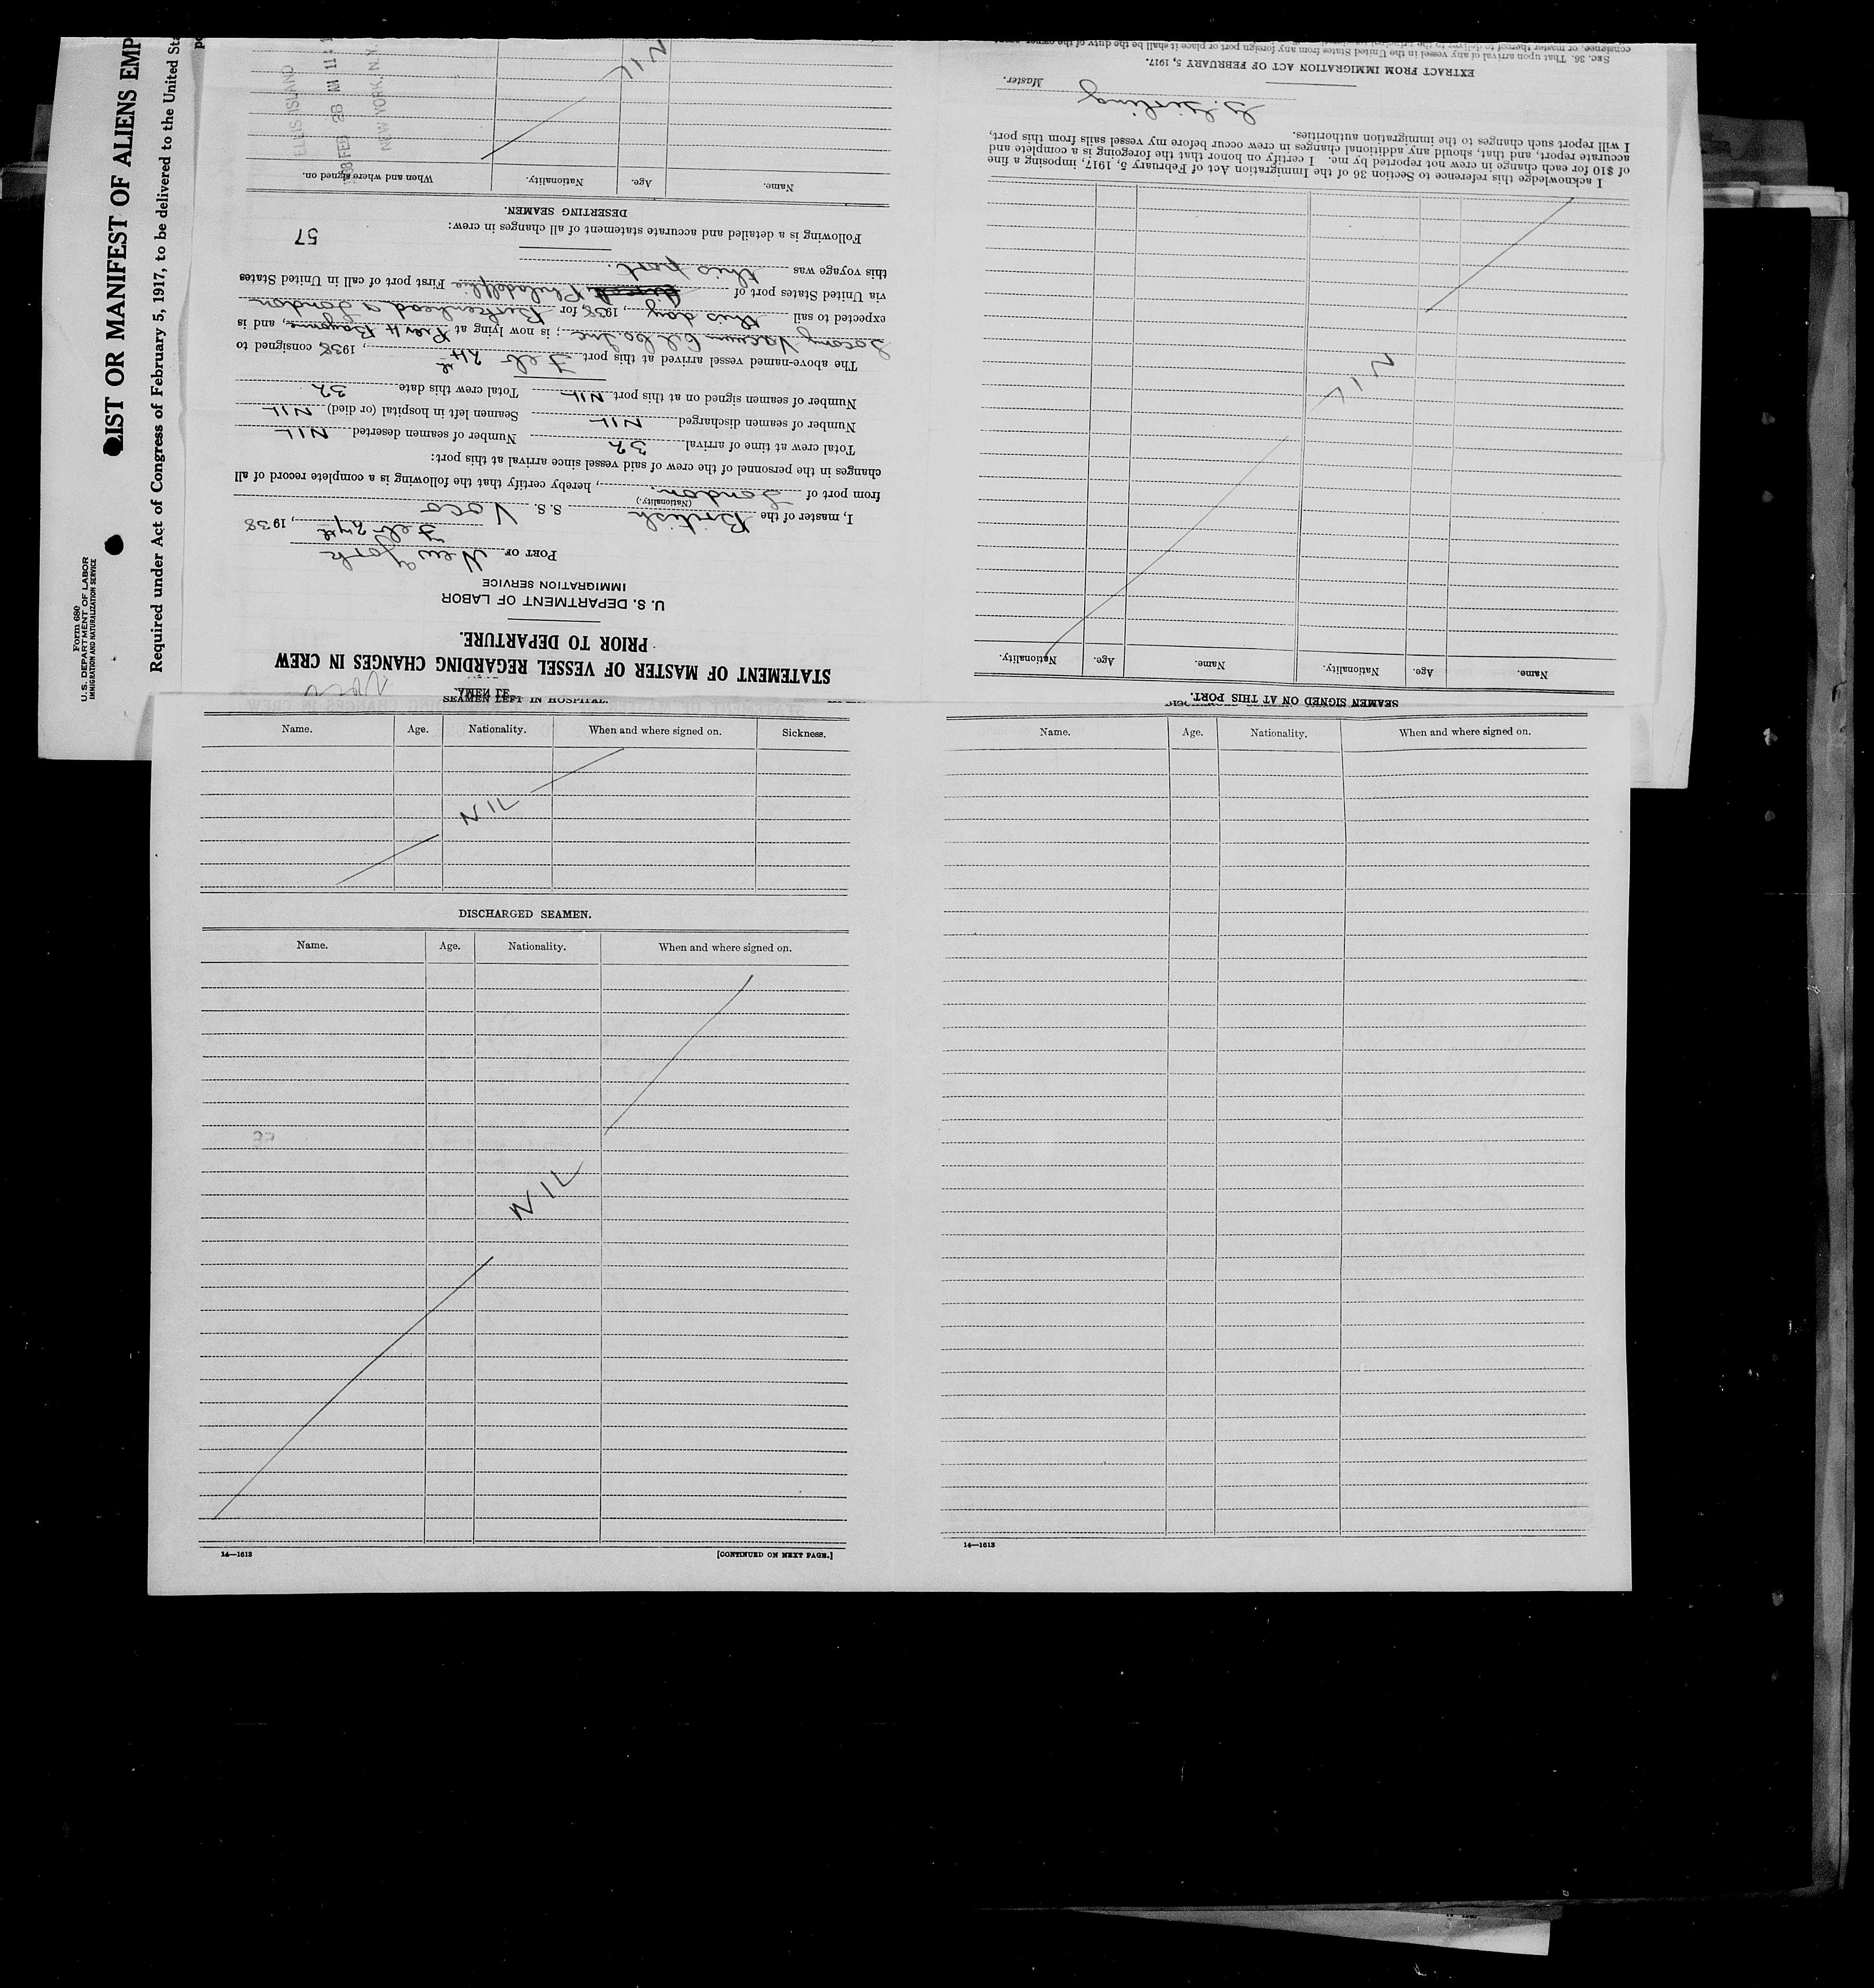 Form 680
U.S. DEPARTMENT OF LABOR
IMMIGRATION AND NATURALIZATION SERVICE
LIST OR MANIFEST OF ALIENS EMP
Required under Act of Congress of February 5, 1917, to be delivered to the United Sta
STATEMENT OF MASTER OF VESSEL REGARDING CHANGES IN CREW
PRIOR TO DEPARTURE.
U. S. DEPARTMENT OF LABOR
IMMIGRATION SERVICE
PORT OF New York
Feb 27th, 1938
I, master of the British S. S. Voco
(Nationality.)
from port of London, hereby certify that the following is a complete record of all
changes in the personnel of the crew of said vessel since arrival at this port:
Total crew at time of arrival 32 Number of seamen deserted NIL
Number of seamen discharged NIL Seamen left in hospital (or died) NIL
Number of seamen signed on at this port NIL Total crew this date 32
The above-named vessel arrived at this port Feb, 1938, consigned to
Socony Vacuum Oil Co. Inc; is now lying at Pier 4 Bayonne, and is
expected to sail this day, 1938, for Birkenhead & London
via United States port of Philadelphia First port of call in United States
this voyage was this port.
Following is a detailed and accurate statement of all changes in crew:
57
DESERTING SEAMEN.
Name. Age. Nationality. When and where signed on.
NIL
ELLIS ISLAND
1938 FEB 28 AM 11:
NEW YORK, N.Y.
SEAMEN SIGNED ON AT THIS PORT.
Name. Age. Nationality. Name. Age. Nationality.
NIL
I acknowledge this reference to Section 36 of the Immigration Act of February 5, 1917, imposing a fine
of $10 for each change in crew not reported by me. I certify on honor that the foregoing is a complete and
accurate report, and that, should any additional changes in crew occur before my vessel sails from this port,
I will report such changes to the immigration authorities.
Master.
EXTRACT FROM IMMIGRATION ACT OF FEBRUARY 5, 1917.
SEC. 36. That upon arrival of any vessel in the United States from any foreign port or place it shall be the duty of the owner, agent,
SEAMEN LEFT IN HOSPITAL.
Name. Age. Nationality. When and where signed on. Sickness.
NIL
DISCHARGED SEAMEN.
Name. Age. Nationality. When and where signed on.
NIL
14—1613 [CONTINUED ON NEXT PAGE.]
Name. Age. Nationality. When and where signed on.
14—1613